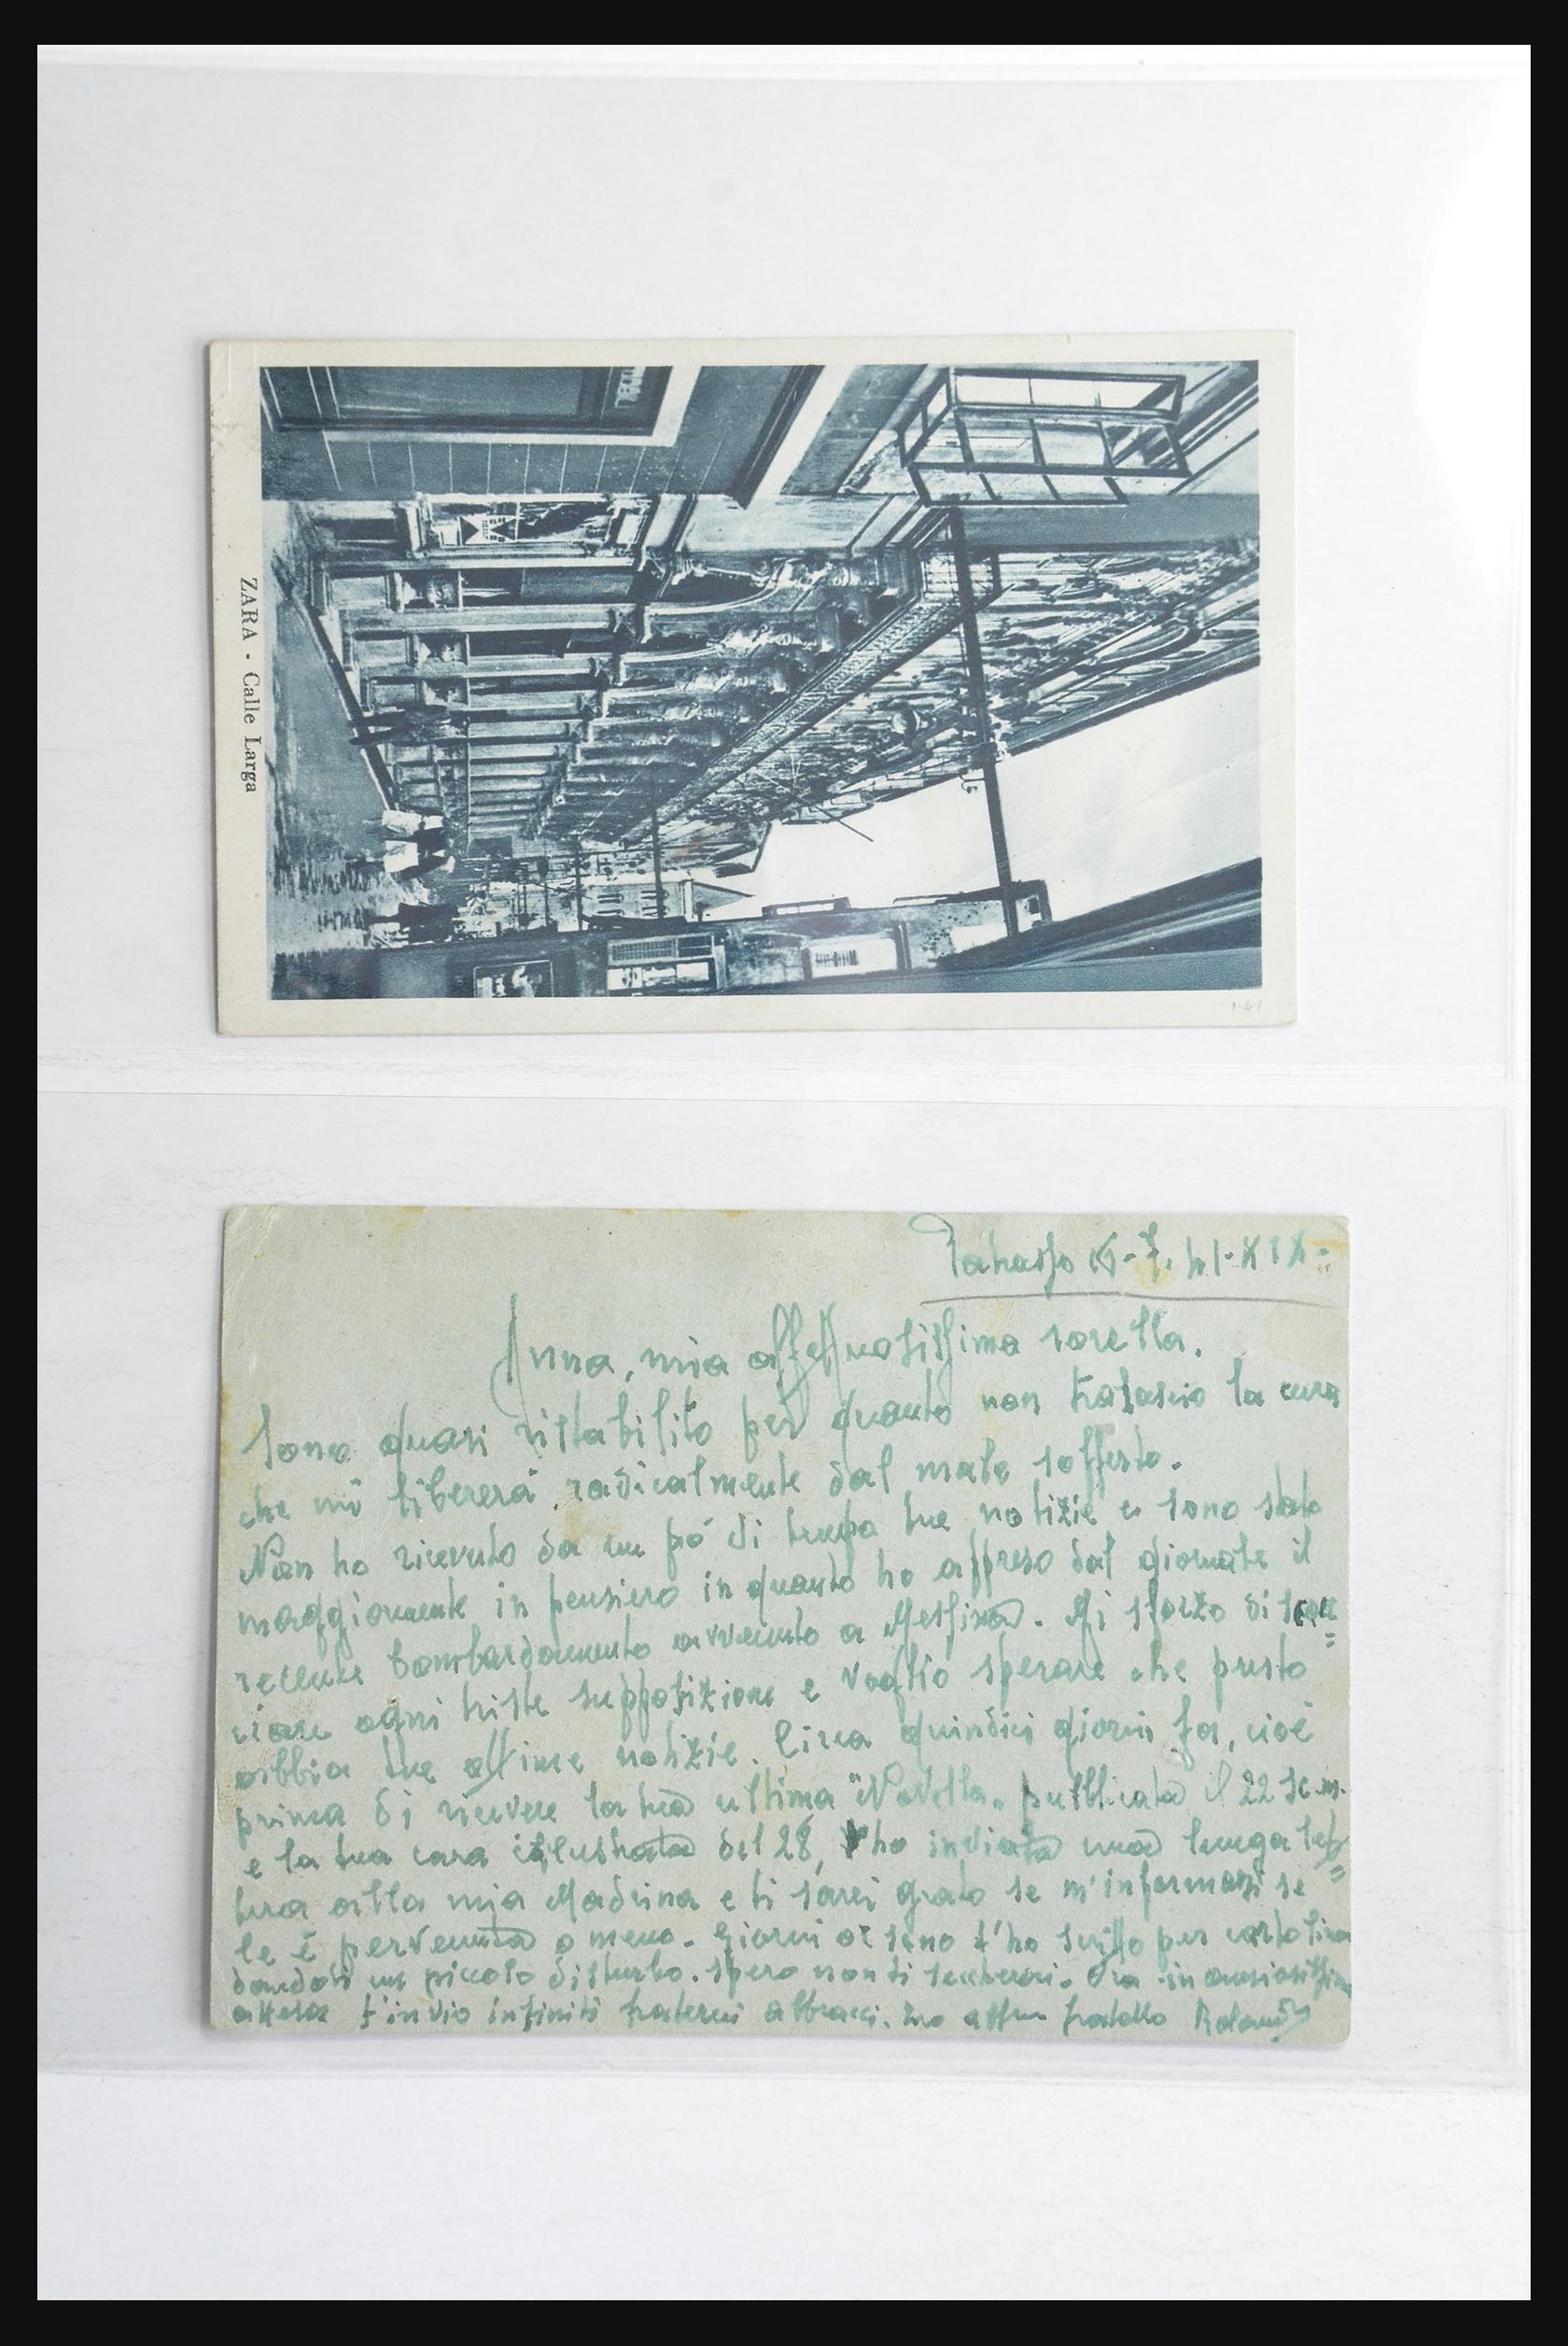 ZARA - Calle Larga
7. 41. XIX.
Anna, mia affettuosissima sorella.
Sono quasi ristabilito per quanto non tralascio la cura
che mi libererà radicalmente dal male sofferto.
Non ho ricevuto da un pó di tempo tue notizie e sono stato
maggiormente in pensiero in quanto ho appreso dal giornale il
recente bombardamento avvenuto a Messina. Mi sforzo di scac=
ciare ogni triste supposizione e voglio sperare che presto
abbia tue ottime notizie. Circa quindici giorni fa, cioè
prima di ricevere la tua ultima "Novella" pubblicata il 22 sc. m.
e la tua cara illustrata del 28, ho inviata una lunga let=
tera alla mia Madrina e ti sarei grato se m'informassi se
le è pervenuta o meno. Giorni or sono t'ho scritto per cartolina
dandoti un piccolo disturbo. Spero non ti seccherai. In ansiosissima
attesa t'invio infiniti fraterni abbracci. Tuo aff.mo fratello